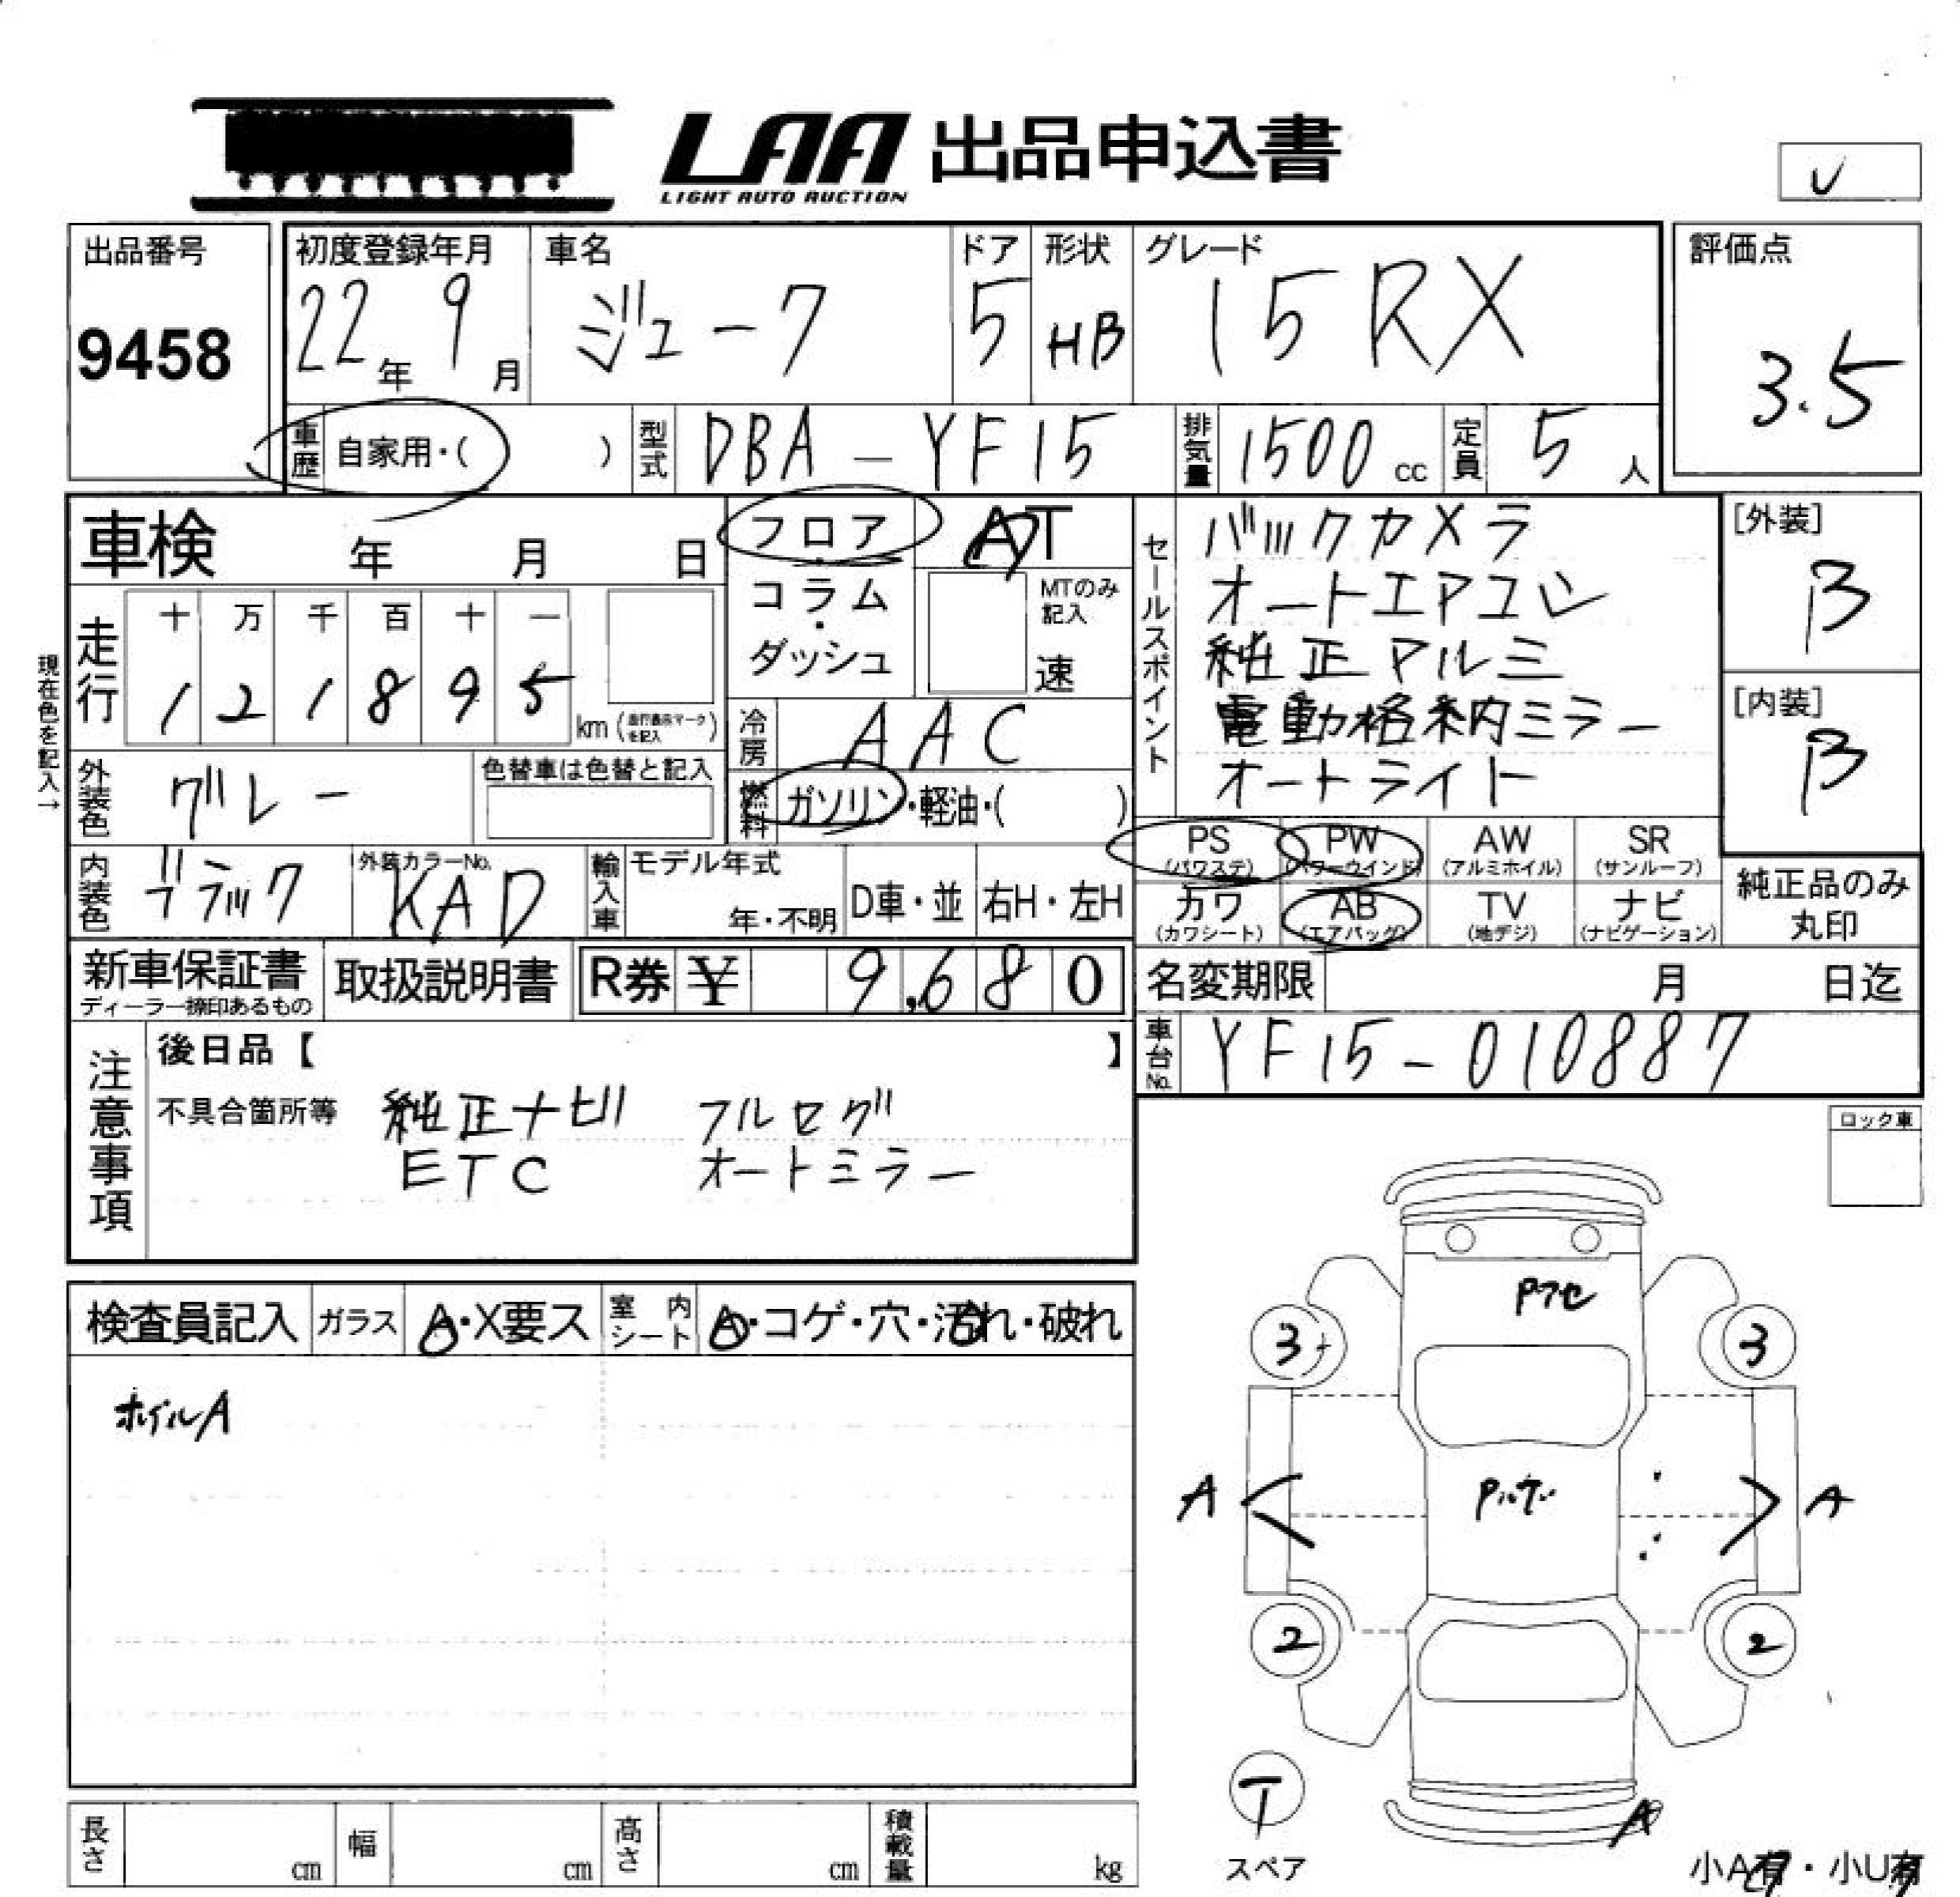 LAA 出品申込書
LIGHT AUTO AUCTION
U
出品番号
9458
初度登録年月
22年 9月
車名
ジューク
ドア
5
形状
HB
グレード
15RX
評価点
3.5
車歴 自家用・( )
型式 DBA-YF15
排気量 1500cc
定員 5人
車検 年 月 日
フロア・コラム・ダッシュ
AT
MTのみ記入
速
セールスポイント
バックカメラ
オートエアコン
純正アルミ
電動格納ミラー
オートライト
[外装]
B
[内装]
B
現在色を記入→
走行
十 万 千 百 十 一
1 2 1 8 9 5
km(走行表示マークを記入)
冷房 AAC
外装色 グレー
色替車は色替と記入
燃料 ガソリン・軽油・( )
PS (パワステ)
PW (パワーウインド)
AW (アルミホイル)
SR (サンルーフ)
カワ (カワシート)
AB (エアバッグ)
TV (地デジ)
ナビ (ナビゲーション)
純正品のみ丸印
内装色 ブラック
外装カラーNo. KAD
輸入車 モデル年式 年・不明
D車・並 右H・左H
新車保証書
ディーラー捺印あるもの
取扱説明書
R券 ¥ 9,680
名変期限 月 日迄
車台No. YF15-010887
注意事項
後日品【 】
不具合箇所等 純正ナビ フルセグ
ETC オートミラー
ロック車
検査員記入
ガラス A・X要ス
室内シート A・コゲ・穴・汚れ・破れ
ホイルA
Pフセ
3 3
A A
2 2
T
スペア
A
小A有・小U有
長さ cm 幅 cm 高さ cm 積載量 kg